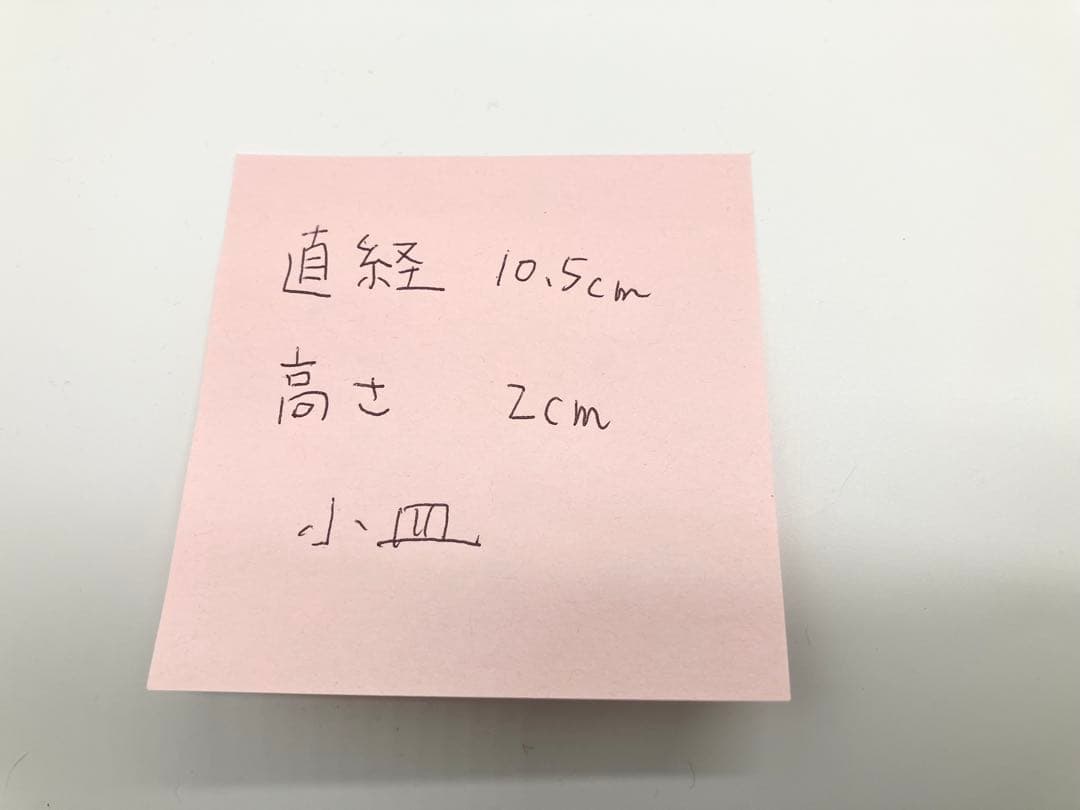 直経 10.5cm
高さ 2cm
小皿